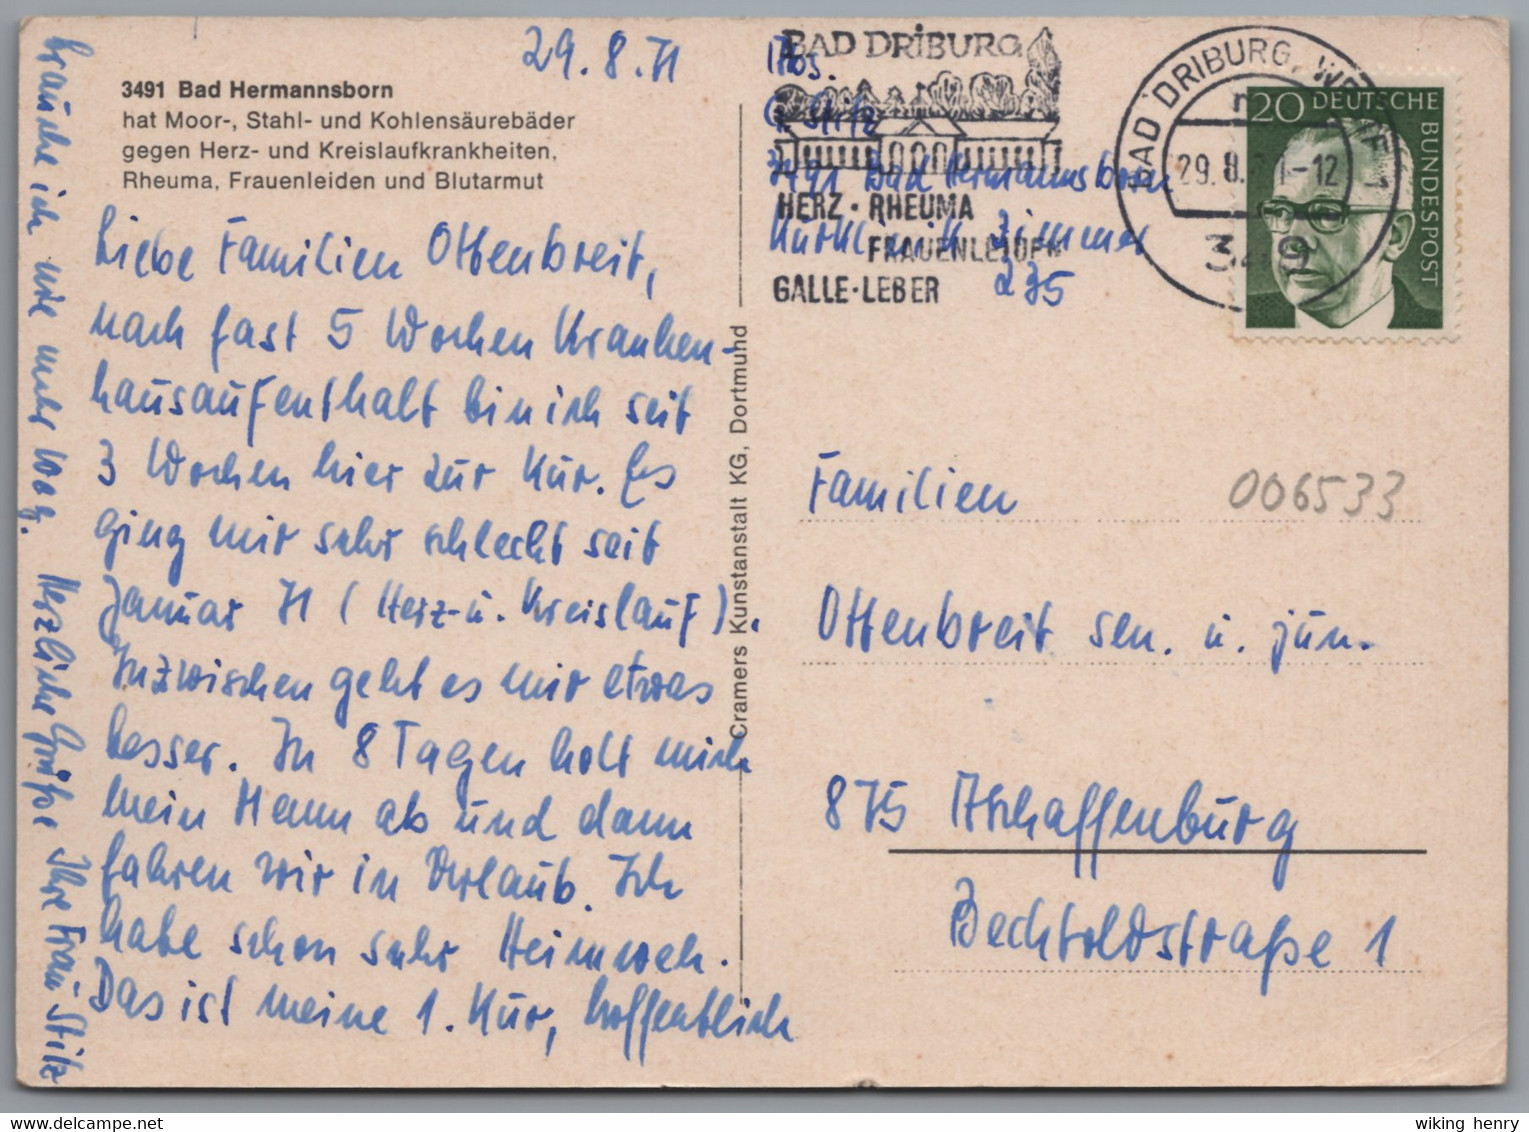 29.8.71
3491 Bad Hermannsborn
hat Moor-, Stahl- und Kohlensäurebäder
gegen Herz- und Kreislaufkrankheiten,
Rheuma, Frauenleiden und Blutarmut
Liebe Familien Ottenbreit,
nach fast 5 Wochen Kranken-
hausaufenthalt bin ich seit
3 Wochen hier zur Kur. Es
ging mir sehr schlecht seit
Januar 71 (Herz- u. Kreislauf).
Inzwischen geht es mir etwas
besser. In 8 Tagen holt mich
mein Mann ab und dann
fahren wir in Urlaub. Ich
habe schon sehr Heimweh.
Das ist meine 1. Kur, hoffentlich
brauche ich nie mehr weg. Herzliche Grüße Ihre Frau Stitz
Cramers Kunstanstalt KG, Dortmund
Abs.
G. Stitz
3491 Bad Hermannsborn
Kurklinik Zimmer
235
BAD DRIBURG
HERZ · RHEUMA
FRAUENLEIDEN
GALLE · LEBER
BAD DRIBURG, WESTF 1
29.8.71-12
349
20 DEUTSCHE
BUNDESPOST
006533
Familien
Ottenbreit sen. u. jun.
875 Aschaffenburg
Bechtoldstraße 1
wiking henry